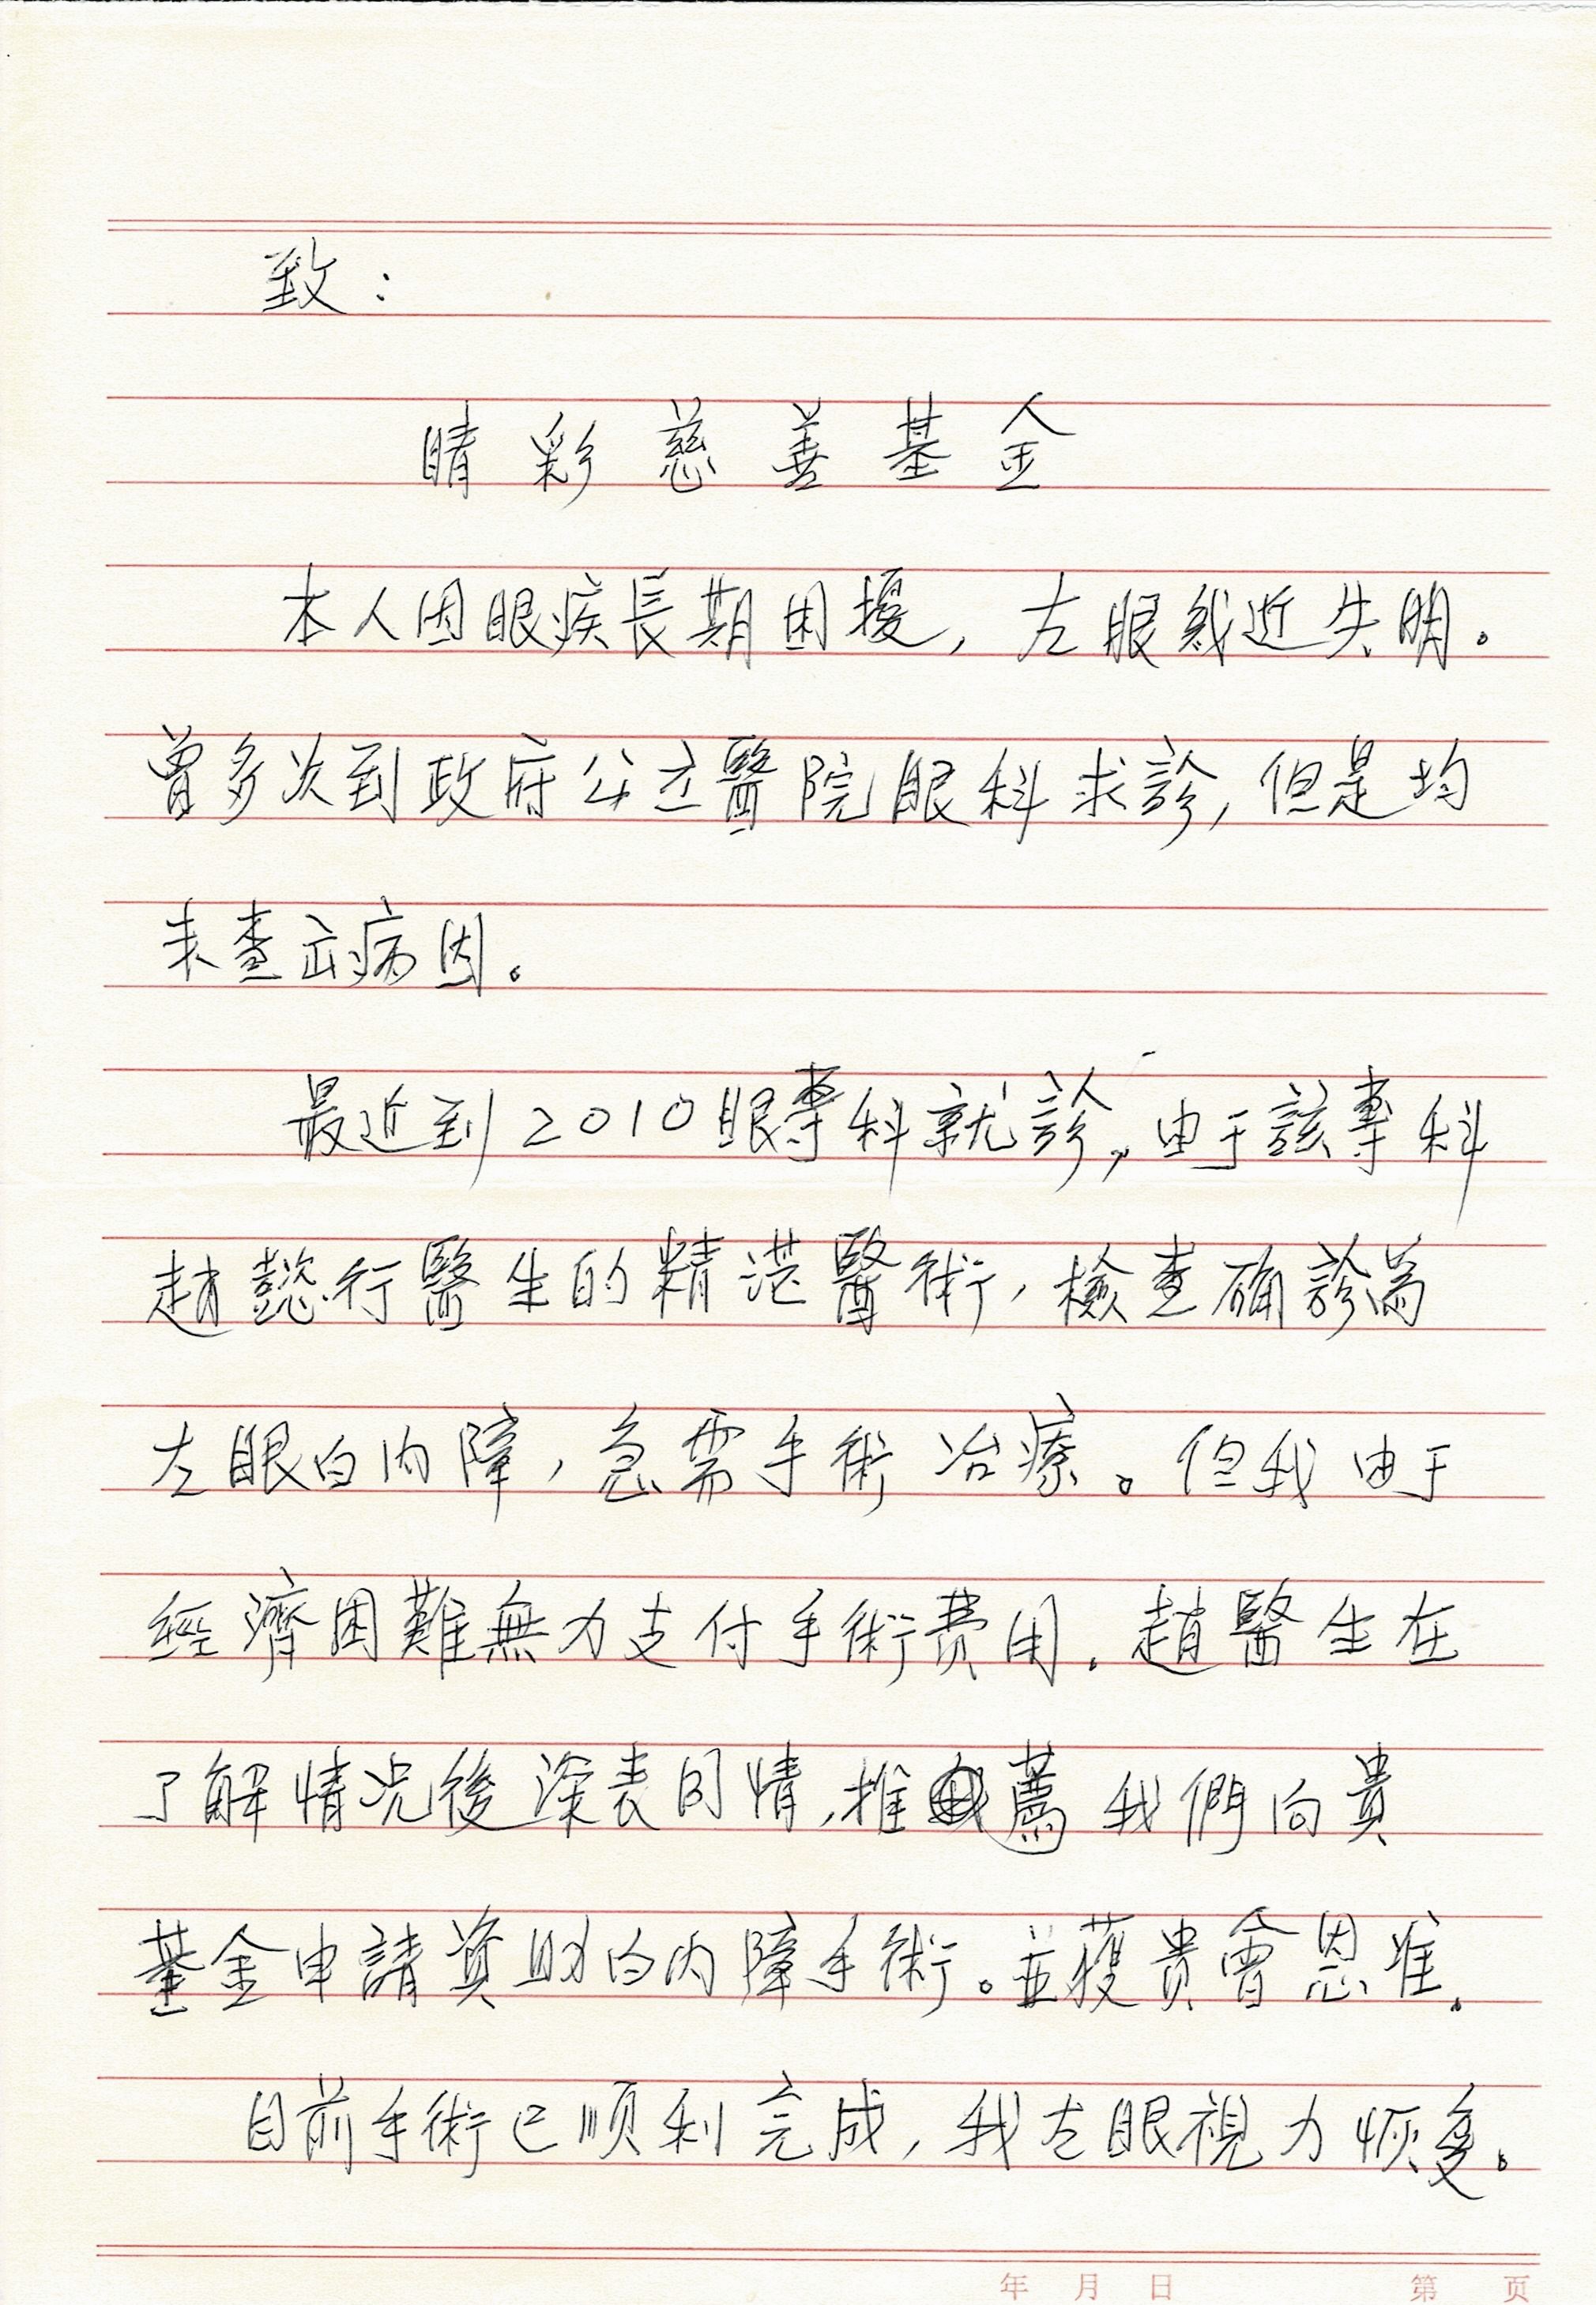 致：
睛彩慈善基金
本人因眼疾長期困擾，左眼幾近失明。
曾多次到政府公立醫院眼科求診，但是均
未查出病因。
最近到2010眼專科就診，由于該專科
趙懿行醫生的精湛醫術，檢查确診為
左眼白内障，急需手術治療。但我由于
經濟困難無力支付手術費用。趙醫生在
了解情况後深表同情，推薦我們向貴
基金申請資助白内障手術。並獲貴會恩准。
目前手術已順利完成，我左眼視力恢复。
年 月 日 第 页